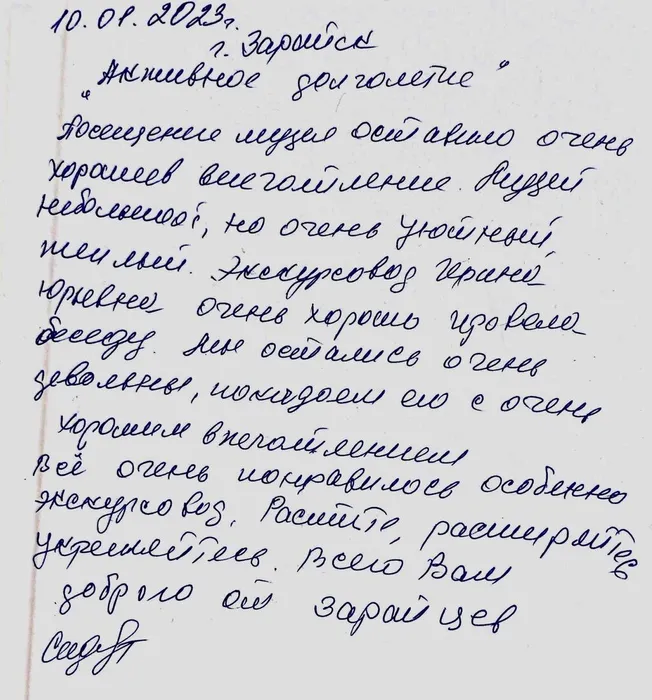 10.01.2023г.
г. Зарайск
"Активное долголетие"
Посещение музея оставило очень
хорошев впечатление. Музей
небольшой, но очень уютный,
теплый. Экскурсовод Ирина
Юрьевна очень хорошо провела
беседу. Мы остались очень
довольны, покидаем его с очень
хорошим впечатлением
Всё очень понравилось особенно
экскурсовод. Растите, расширяйтесь
укрепляйтесь. Всего Вам
доброго от зарайцев